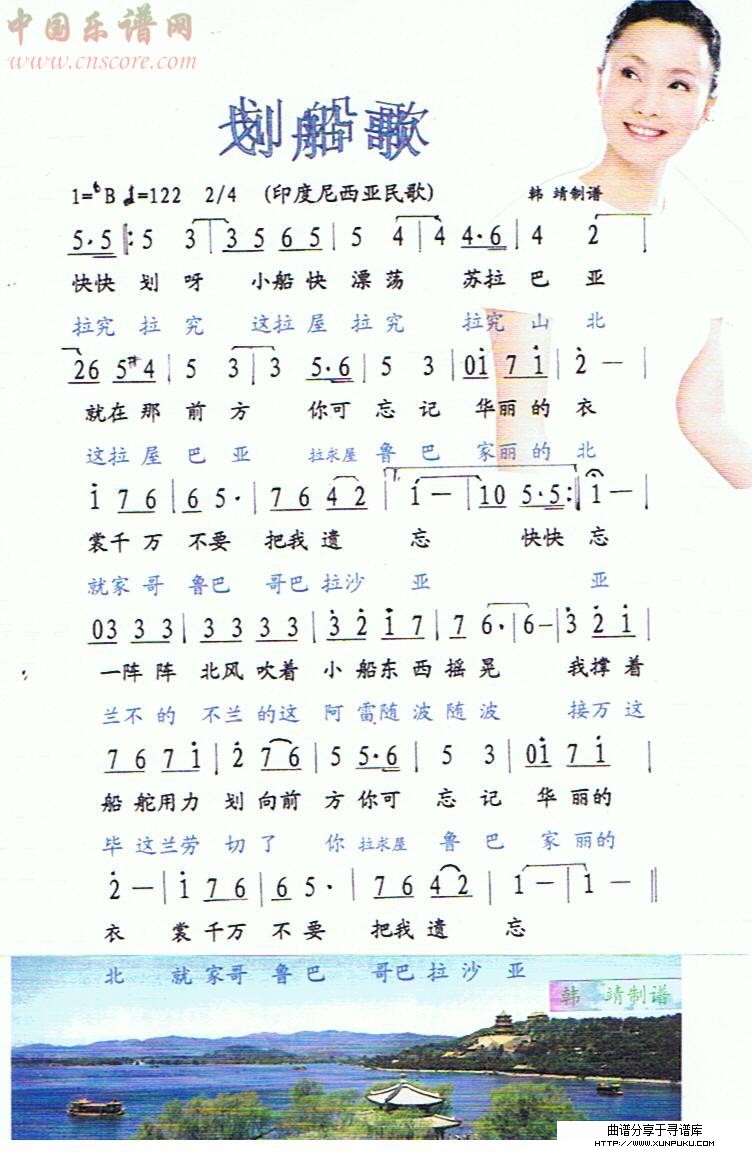 中国乐谱网
www.cnscore.com
划船歌
1=♭B ♩=122 2/4 (印度尼西亚民歌) 韩 靖制谱
5·5 |: 5 3 | 3 5 6 5 | 5 4 | 4 4·6 | 4 2 |
快快 划 呀 小船 快 漂 荡 苏拉 巴 亚
拉究 拉 究 这拉 屋 拉 究 拉究 山 北
26 5 #4 | 5 3 | 3 5·6 | 5 3 | 0i 7 i | 2 — |
就在 那 前 方 你可 忘 记 华丽 的 衣
这拉 屋 巴 亚 拉求屋 鲁 巴 家丽 的 北
i 7 6 | 6 5· | 7 6 4 2 | i — | 10 5·5 :| i — |
裳千 万 不要 把我 遗 忘 快快 忘
就家 哥 鲁巴 哥巴 拉沙 亚 亚
03 3 3 | 3 3 3 3 | 3 2 i 7 | 7 6· | 6 — | 3 2 i |
一阵 阵 北风 吹着 小 船东 西 摇 晃 我 撑 着
兰不 的 不兰 的这 阿 雷随 波 随 波 接 万 这
7 6 7 i | 2 7 6 | 5 5·6 | 5 3 | 0i 7 i |
船 舵用 力 划 向前 方 你可 忘 记 华 丽的
毕 这兰 劳 切 了 你 拉求屋 鲁 巴 家 丽的
2 — | i 7 6 | 6 5· | 7 6 4 2 | 1 — | 1 — ‖
衣 裳 千万 不 要 把我 遗 忘
北 就 家哥 鲁 巴 哥巴 拉 沙 亚
韩 靖制谱
曲谱分享于寻谱库
HTTP://WWW.XUNPUKU.COM